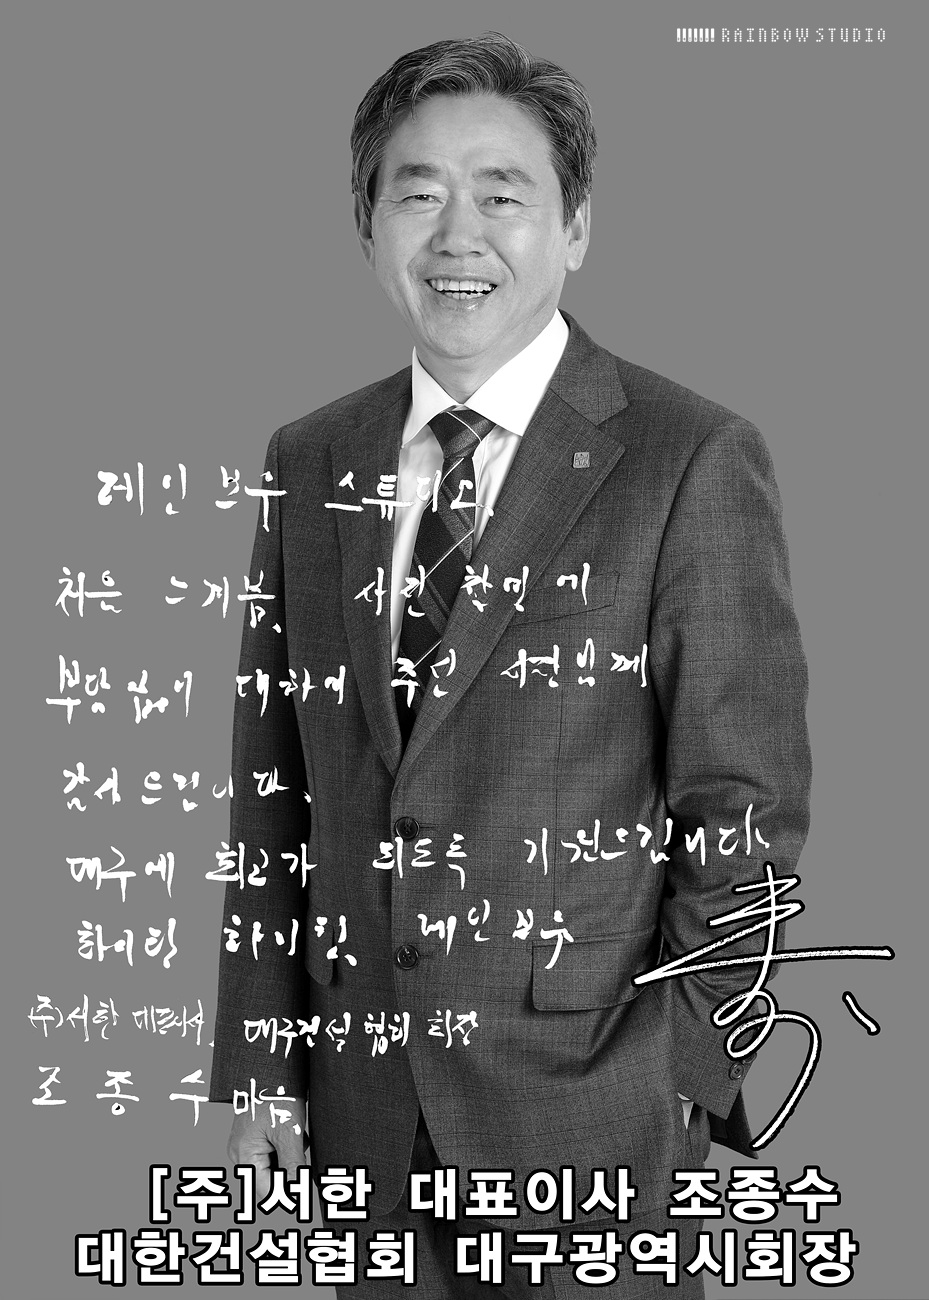 RAINBOW STUDIO
레인보우 스튜디오,
처음 느껴봄, 사진 촬영에
부담없이 대하여 주신 사진님께
감사드립니다,
대구에 최고가 되도록 기원드립니다,
화이팅 화이팅, 레인보우
(주)서한 대표이사, 대구건설협회 회장
조종수 마음,
[주]서한 대표이사 조종수
대한건설협회 대구광역시회장